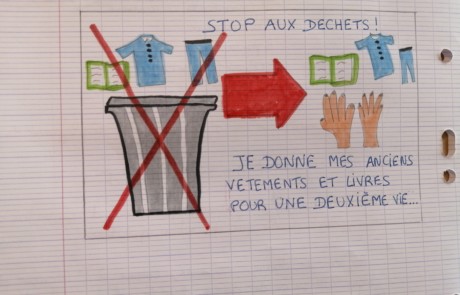 STOP AUX DECHETS !
JE DONNE MES ANCIENS
VETEMENTS ET LIVRES
POUR UNE DEUXIÈME VIE...